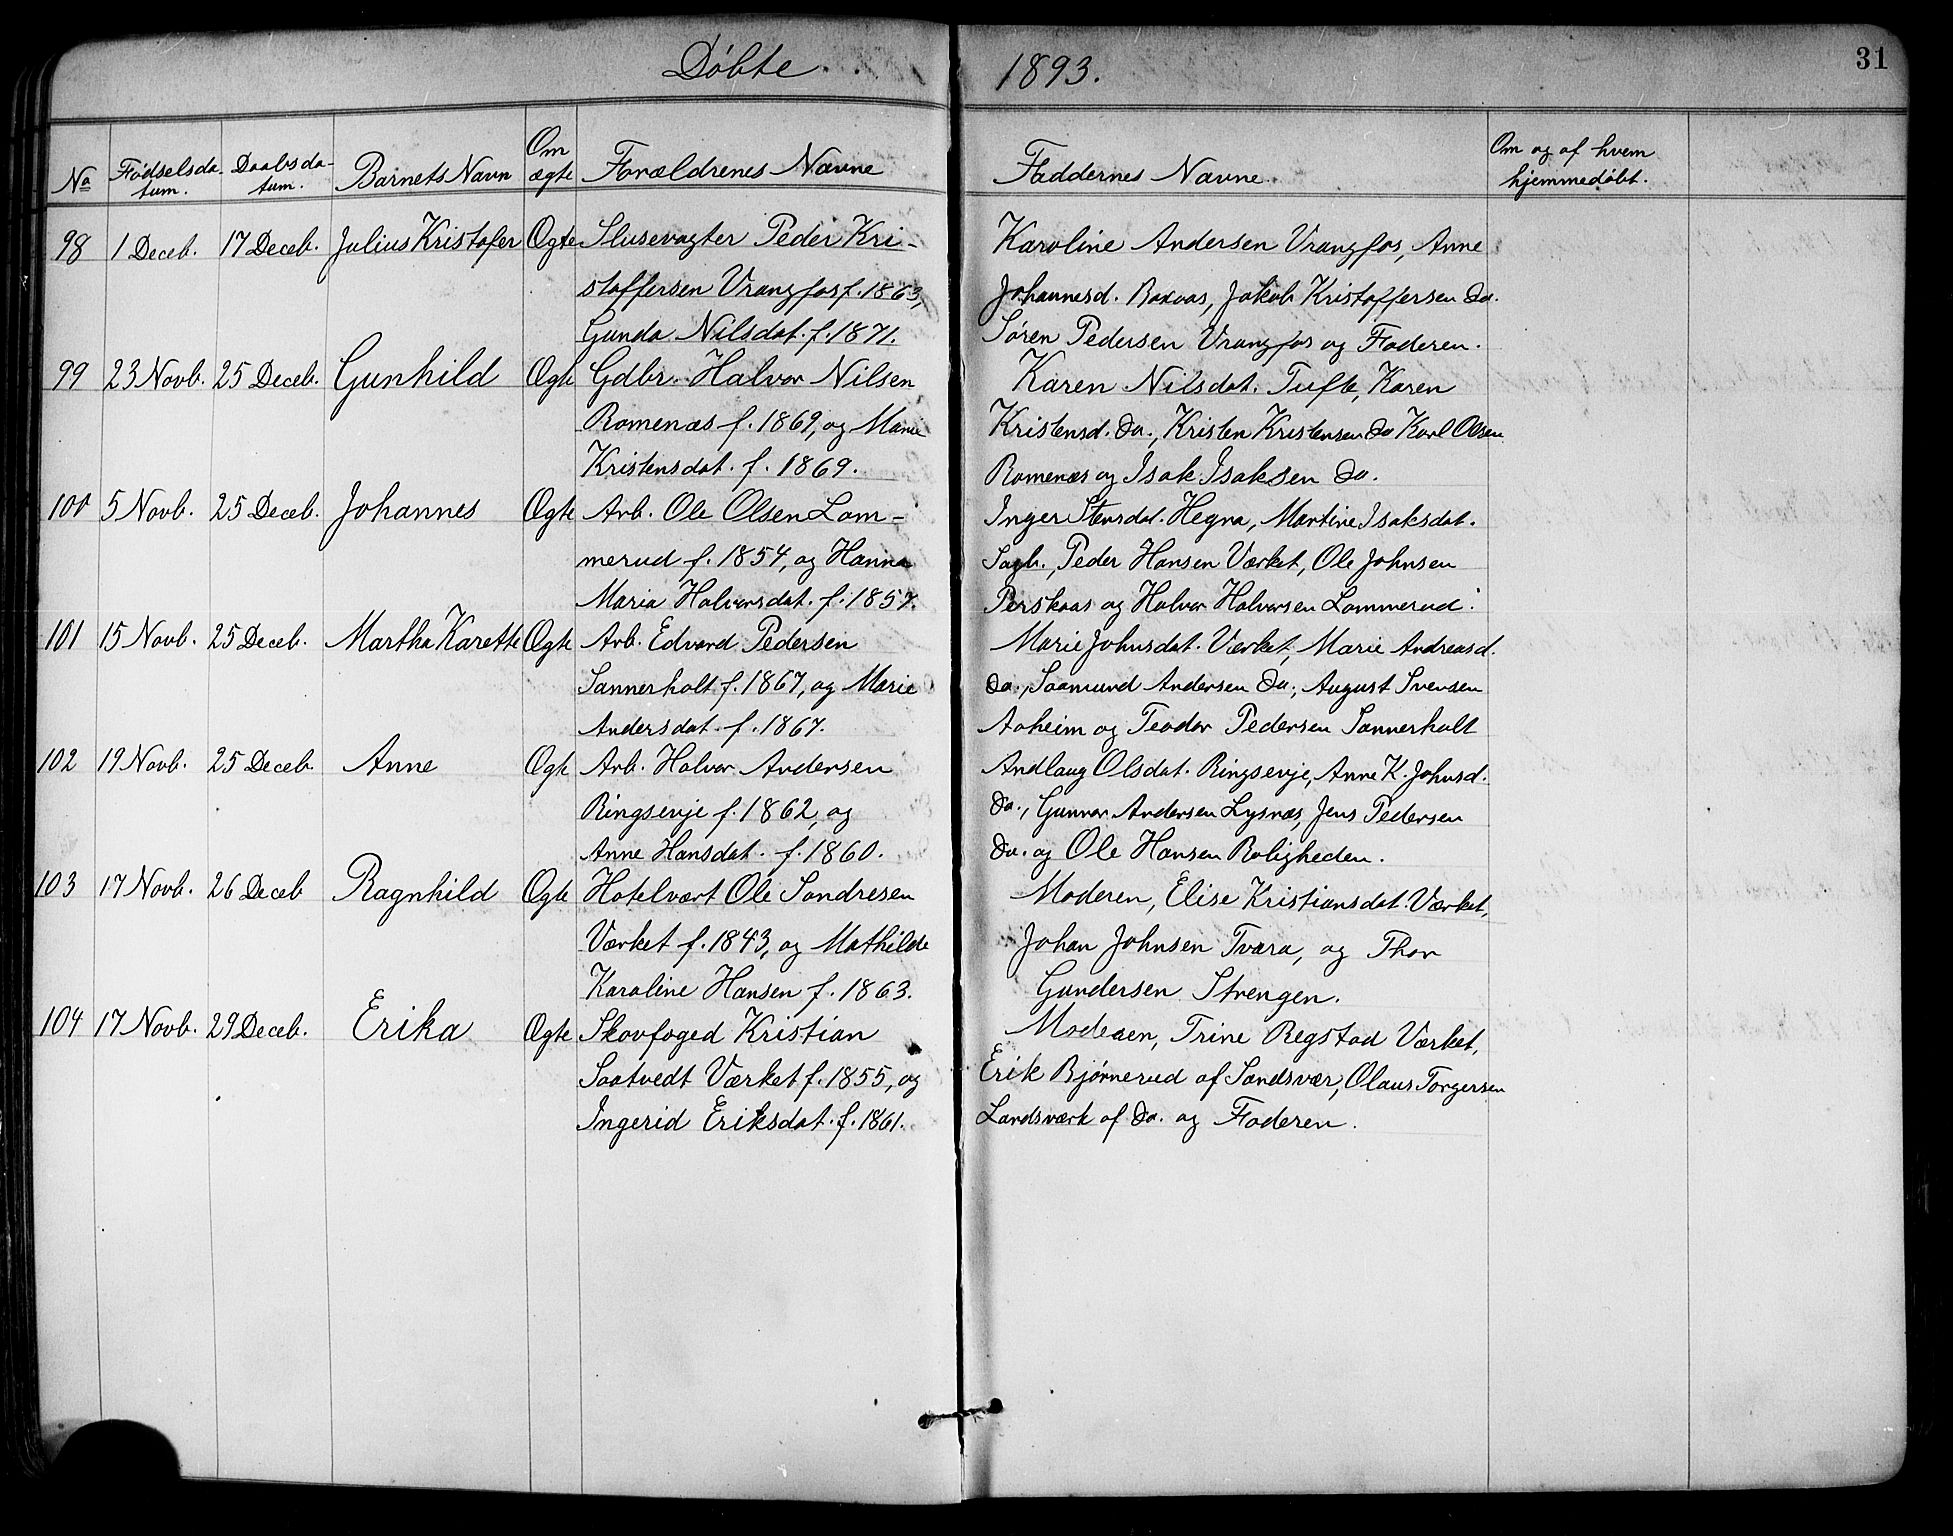 Døbte 1893. 31
No Fødselsda-tum. Daabsda-tum. Barnets Navn Om ægte Forældrenes Navne Faddernes Navne Om og af hvem hjemmedøbt.
98 1 Deceb. 17 Deceb. Julius Kristofer Ægte Slusevagter Peder Kri-
stoffersen Vrangfos f. 1863,
Gunda Nilsdat. f. 1871.
Karoline Andersen Vrangfos, Anne
Johannesd. Jakob Kristoffersen Do.
Søren Pedersen Vrangfos og Faderen.
99 23 Novb. 25 Deceb. Gunhild Ægte Gdbr. Halvor Nilsen
Romenæs f. 1869, og Marie
Kristensdat. f. 1869.
Karen Nilsdat. Tufte, Karen
Kristensd. Do., Kristen Kristensen Do Karl Olsen
Romenæs og Isak Isaksen Do.
100 5 Novb. 25 Deceb. Johannes Ægte Arb. Ole Olsen Lom-
merud f. 1854, og Hanna
Maria Halvorsdat. f. 1857.
Inger Stensdat. Hegna, Martine Isaksdat.
Sagb., Peder Hansen Værket, Ole Johnsen
Perskaas og Halvor Halvorsen Lommerud.
101 15 Novb. 25 Deceb. Martha Karette Ægte Arb. Edvard Pedersen
Sannerholt f. 1867, og Marie
Andersdat. f. 1867.
Marie Johnsdat. Værket, Marie Andreasd.
Do., Saamund Andersen Do., August Svensen
Aaheim og Teodor Pedersen Sannerholt
102 19 Novb. 25 Deceb. Anne Ægte Arb. Halvor Andersen
Ringsevje f. 1862, og
Anne Hansdat. f. 1860.
Andlaug Olsdat. Ringsevje, Anne K. Johnsd.
Do., Gunnar Andersen Lysnæs, Jens Pedersen
Do. og Ole Hansen Roligheden.
103 17 Novb. 26 Deceb Ragnhild Ægte Hotelvært Ole Sondresen
Værket f. 1843, og Mathilde
Karoline Hansen f. 1863.
Moderen, Elise Kristiansdat. Værket,
Johan Johnsen Tvara, og Thor
Gundersen Strengen.
104 17 Novb. 29 Deceb. Erika Ægte Skovfoged Kristian
Saatvedt Værket f. 1855, og
Ingerid Eriksdat. f. 1861.
Moderen, Trine Regstad Værket,
Erik Bjørnerud af Sandsvær, Olaus Torgersen
Landsværk af Do. og Faderen.